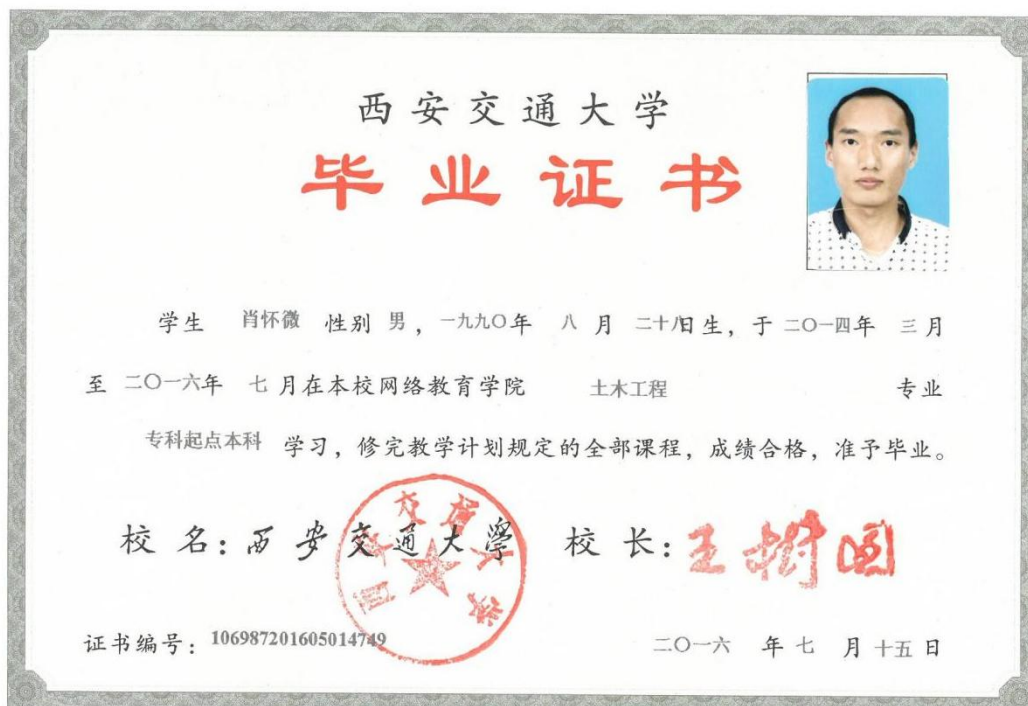 西安交通大学
毕业证书
学生 肖怀微 性别 男，一九九〇年 八 月 二十八日生，于 二〇一四年 三月
至 二〇一六年 七 月在本校网络教育学院 土木工程 专业
专科起点本科 学习，修完教学计划规定的全部课程，成绩合格，准予毕业。
校 名：西安交通大学 校 长：王树国
西安交通大学
证书编号：106987201605014749
二〇一六 年 七 月 十五 日